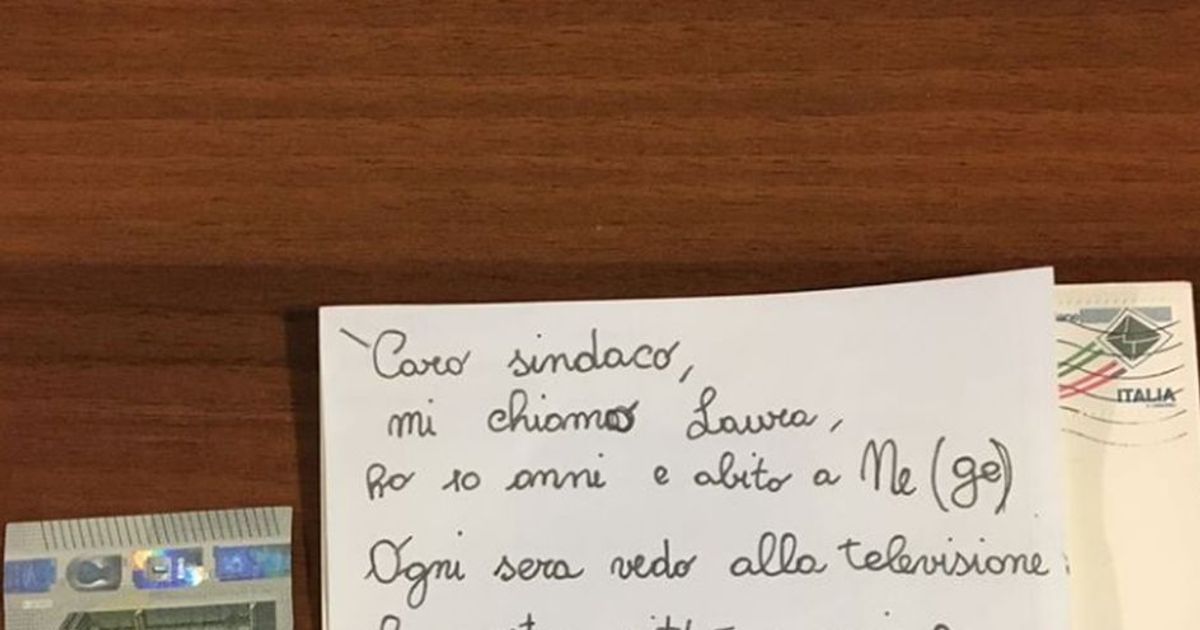 Caro sindaco,
mi chiamo Laura,
ho 10 anni e abito a Ne (ge)
Ogni sera vedo alla televisione
ITALIA